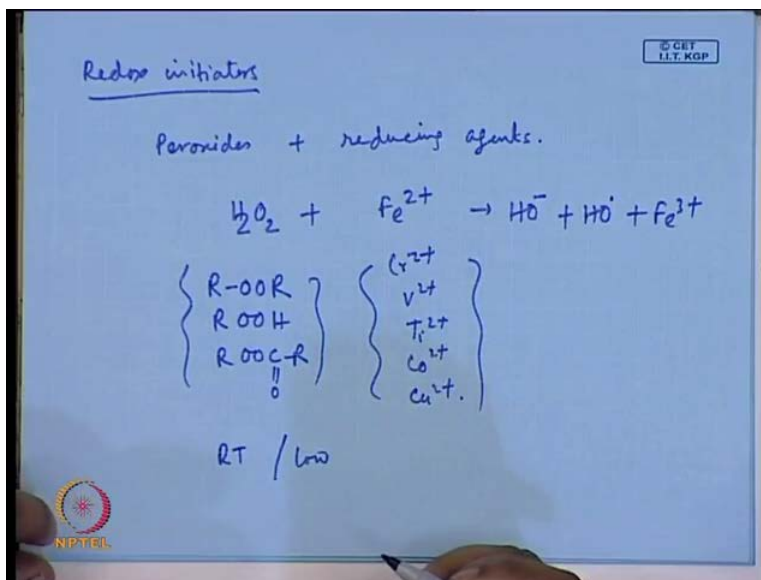 © CET
I.I.T. KGP
Redox initiators
Peroxides + reducing agents.
H2O2 + Fe2+ → HO- + HO• + Fe3+
R-OOR Cr2+
ROOH V2+
ROOC-R Ti2+
O Co2+
Cu2+.
RT / Low
NPTEL